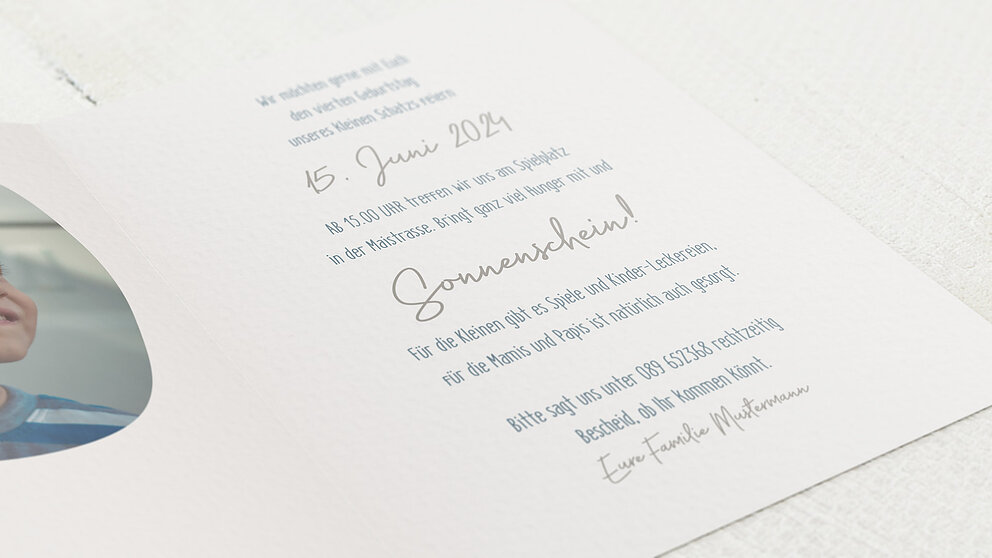 Wir möchten gerne mit Euch
den vierten Geburtstag
unseres Kleinen Schatzs feiern
15. Juni 2024
AB 15.00 UHR treffen wir uns am Spielplatz
in der Maistrasse. Bringt ganz viel Hunger mit und
Sonnenschein!
Für die Kleinen gibt es Spiele und Kinder-Leckereien,
für die Mamis und Papis ist natürlich auch gesorgt.
Bitte sagt uns unter 089 652368 rechtzeitig
Bescheid, ob Ihr Kommen Könnt.
Eure Familie Mustermann